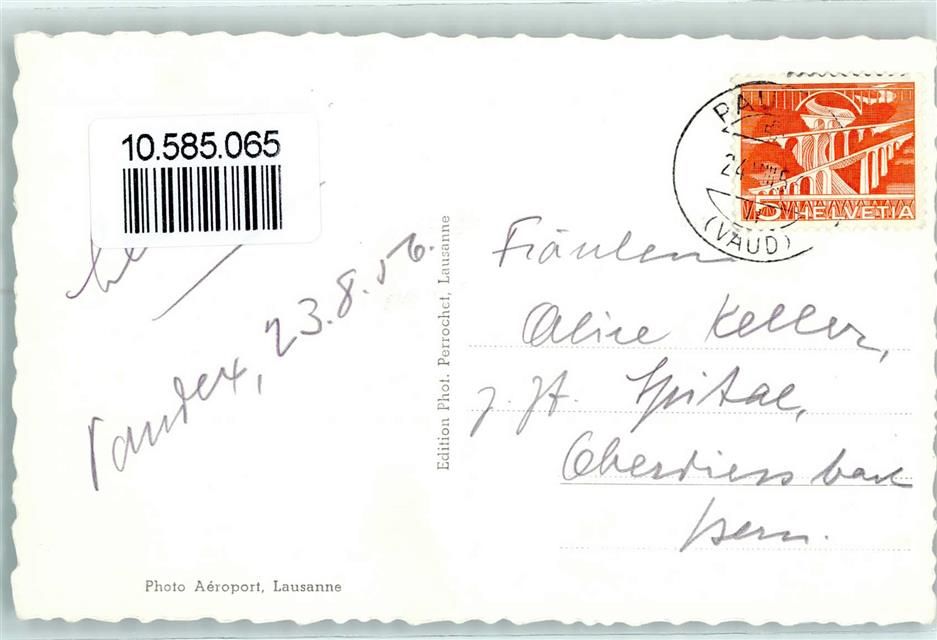 10.585.065
Paudex, 23.8.56.
Photo Aéroport, Lausanne
Edition Phot. Perrochet, Lausanne
PAU
24
(VAUD)
5 HELVETIA
Fräulein
Alice Keller,
z. Zt. Spital,
Oberdiessbach
Bern.